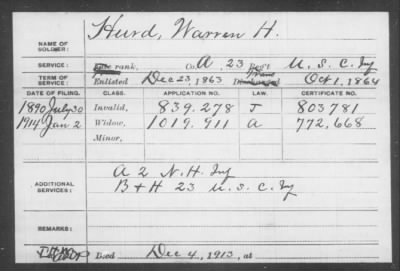 Hurd, Warren H.
NAME OF SOLDIER:
SERVICE: Late rank, Co. A, 23 Reg't U. S. C. Inf
TERM OF SERVICE: Enlisted Dec 23, 1863 Discharged Oct 1, 1864
DATE OF FILING. CLASS. APPLICATION NO. LAW. CERTIFICATE NO.
1890 July 30 Invalid, 839.278 J 803781
1914 Jan 2 Widow, 1019.911 a 772,668
Minor,
ADDITIONAL SERVICES: A 2 N. H. Inf
B + H 23 U. S. C. Inf
REMARKS:
Died Dec 4, 1913, at